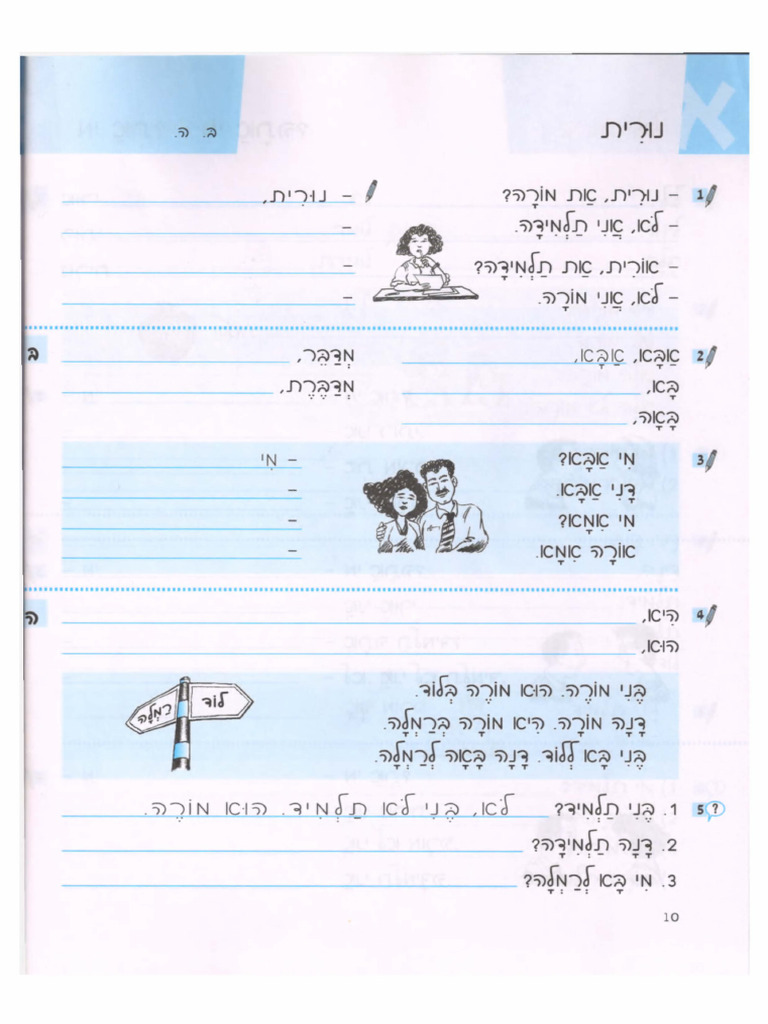 א
נוּרִית
ב. ה.
1 – נוּרִית, אַת מוֹרָה? – נוּרִית,
– לֹא, אֲנִי תַּלְמִידָה. –
– אוֹרִית, אַת תַּלְמִידָה? –
– לֹא, אֲנִי מוֹרָה. –
2 אַבָּא, אַבָּא, מְדַבֵּר, ב
בָּא, מְדַבֶּרֶת,
בָּאָה,
3 מִי אַבָּא? – מִי
דָּנִי אַבָּא. –
מִי אִמָּא? –
אוֹרָה אִמָּא. –
4 הִיא, ה
הוּא,
בֶּנִי מוֹרֶה. הוּא מוֹרֶה בְּלוֹד.
דָּנָה מוֹרָה. הִיא מוֹרָה בְּרַמְלָה.
בֶּנִי בָּא לְלוֹד. דָּנָה בָּאָה לְרַמְלָה.
לוֹד
רַמְלָה
5 ? 1. בֶּנִי תַּלְמִיד? לֹא, בֶּנִי לֹא תַּלְמִיד. הוּא מוֹרֶה.
2. דָּנָה תַּלְמִידָה?
3. מִי בָּא לְרַמְלָה?
10